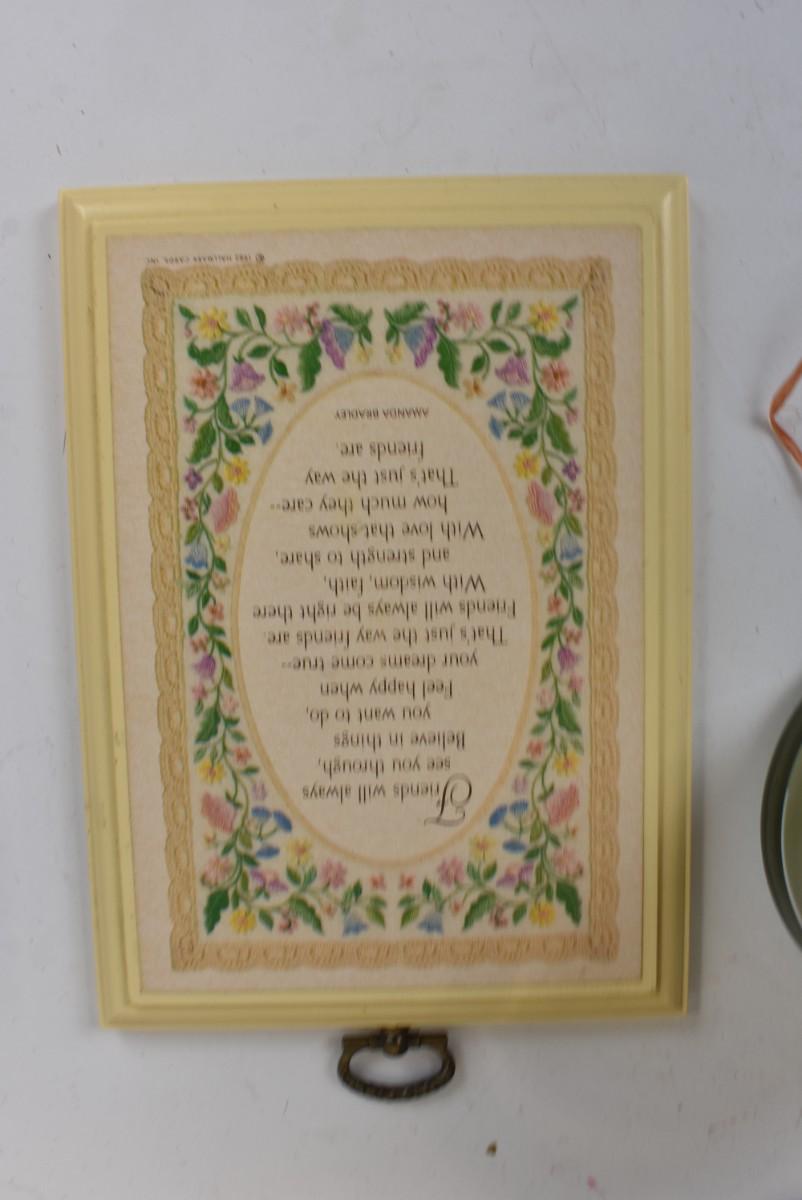 Friends will always
see you through,
Believe in things
you want to do,
Feel happy when
your dreams come true--
That's just the way friends are.
Friends will always be right there
With wisdom, faith,
and strength to share,
With love that shows
how much they care--
That's just the way
friends are.
AMANDA BRADLEY
© 1982 HALLMARK CARDS, INC.